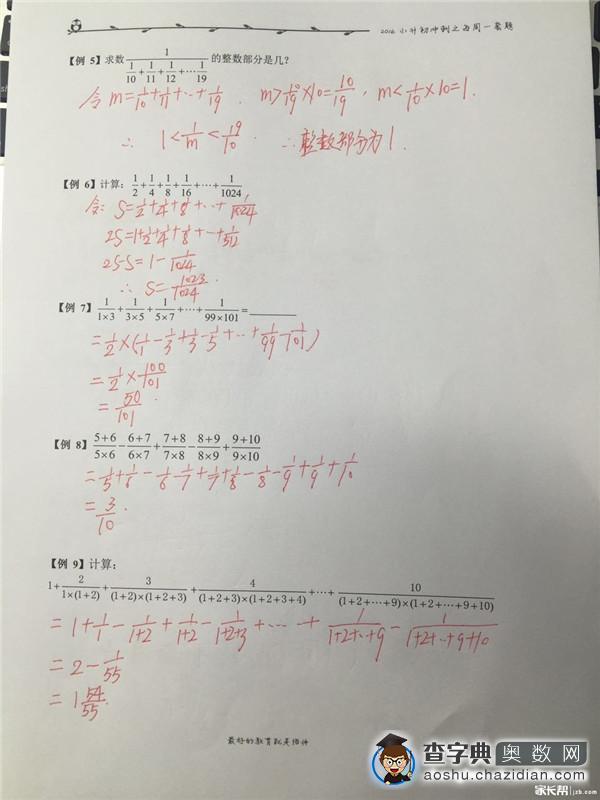 2016小升初冲刺之每周一套题
【例 5】求数 1/(1/10+1/11+1/12+…+1/19) 的整数部分是几?
令 m=1/10+1/11+…+1/19 , m>1/19×10=10/19 , m<1/10×10=1.
∴ 1<1/m<19/10 . ∴整数部分为1.
【例 6】计算: 1/2+1/4+1/8+1/16+…+1/1024
令: S=1/2+1/4+1/8+…+1/1024
2S=1+1/2+1/4+1/8+…+1/512
2S-S=1-1/1024
∴ S=1023/1024 .
【例 7】1/(1×3)+1/(3×5)+1/(5×7)+…+1/(99×101)=________
=1/2×(1/1-1/3+1/3-1/5+…+1/99-1/101)
=1/2×100/101
=50/101 .
【例 8】(5+6)/(5×6)-(6+7)/(6×7)+(7+8)/(7×8)-(8+9)/(8×9)+(9+10)/(9×10)
=1/5+1/6-1/6-1/7+1/7+1/8-1/8-1/9+1/9+1/10
=3/10 .
【例 9】计算:
1+2/(1×(1+2))+3/((1+2)×(1+2+3))+4/((1+2+3)×(1+2+3+4))+…+10/((1+2+…+9)×(1+2+…+9+10))
=1+1/1-1/(1+2)+1/(1+2)-1/(1+2+3)+…+1/(1+2+…+9)-1/(1+2+…+9+10)
=2-1/55
=1 54/55 .
最好的教育就是陪伴
查字典奥数网
aoshu.chazidian.com
家长帮 jzb.com